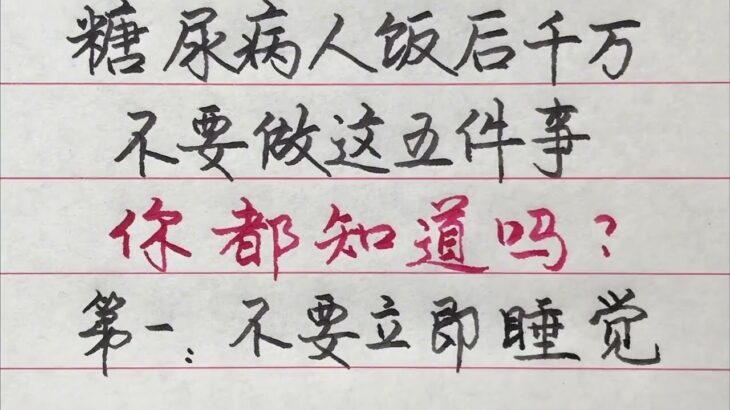 糖尿病人饭后千万
不要做这五件事
你都知道吗?
第一:不要立即睡觉